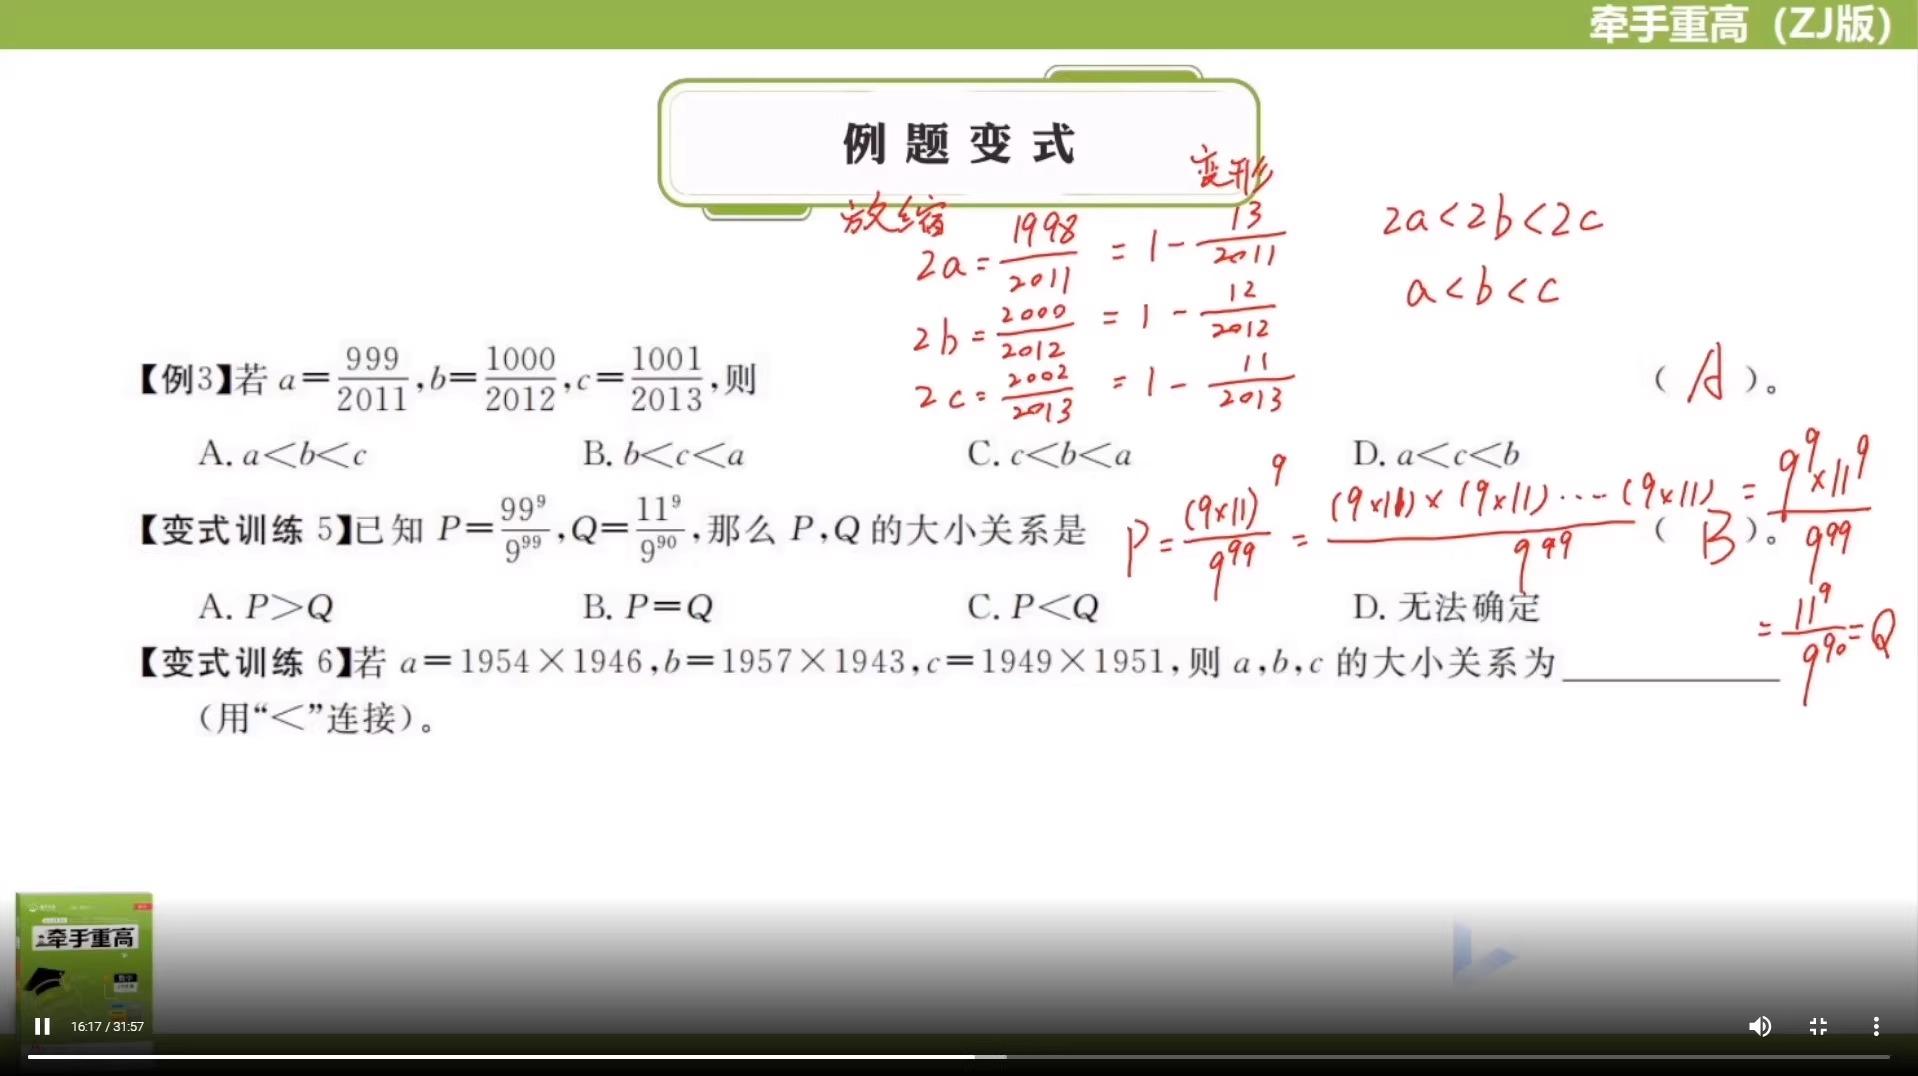 牵手重高（ZJ版）
例题变式
变形
放缩
2a = 1998/2011 = 1 - 13/2011
2a < 2b < 2c
2b = 2000/2012 = 1 - 12/2012
a < b < c
2c = 2002/2013 = 1 - 11/2013
【例3】若 a=999/2011,b=1000/2012,c=1001/2013,则 （ A ）。
A. a<b<c B. b<c<a C. c<b<a D. a<c<b
【变式训练 5】已知 P=99⁹/9⁹⁹,Q=11⁹/9⁹⁰,那么 P,Q 的大小关系是 （ B ）。
P = (9×11)⁹/9⁹⁹ = (9×11)×(9×11)····(9×11)/9⁹⁹ = 9⁹×11⁹/9⁹⁹
= 11⁹/9⁹⁰ = Q
A. P>Q B. P=Q C. P<Q D. 无法确定
【变式训练 6】若 a=1954×1946,b=1957×1943,c=1949×1951,则 a,b,c 的大小关系为
（用“<”连接）。
牵手重高
数学
16:17 / 31:57